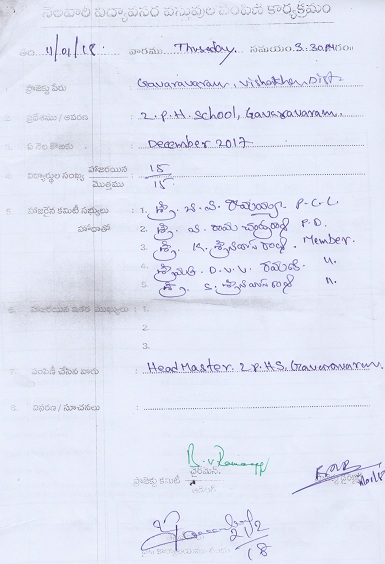 నెలవారీ విద్యావసర వస్తువుల పంపిణీ కార్యక్రమం
11/01/18 వారము Thursday సమయం 5:30
ప్రాజెక్టు పేరు Gavaravaram, Visakha Dist.
2. ప్రదేశము / ఆవరణ Z.P.H. School, Gavaravaram.
3. ఏ నెల కొరకు December 2017
4. విద్యార్థుల సంఖ్య హాజరయిన 15
మొత్తము 15
5. హాజరైన కమిటీ సభ్యులు 1. శ్రీ. బి.వి. రామయ్య P.C.L.
హోదాతో 2. శ్రీ. P.D.
3. శ్రీ. K. శ్రీనివాస రావు. Member.
4. శ్రీమతి. D.V.V. రమణి "
5. శ్రీ. S. శ్రీనివాస రావు "
6. 1.
2.
3.
7. పంపిణీ చేసిన వారు Head Master. Z.P.H.S, Gavaravaram.
8. వివరణ / సూచనలు
ప్రాజెక్టు కమిటీ చైర్మన్
21/2/18